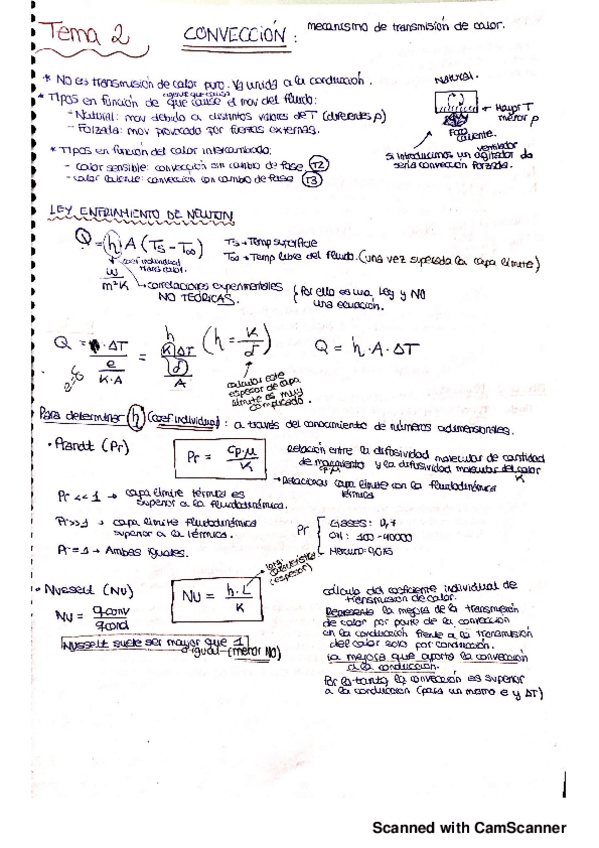 Tema 2
CONVECCIÓN: mecanismo de transmisión de calor.
* No es transmisión de calor puro. Va unida a la conducción.
* Tipos en función de que cause el mov del fluido:
- Natural: mov debido a distintos valores de T (diferentes ρ)
- Forzada: mov provocado por fuerzas externas.
NATURAL.
Mayor T
menor ρ
Foco caliente.
ventilador
Si introducimos un agitador
sería convección forzada.
* Tipos en función del calor intercambiado:
- calor sensible: convección sin cambio de fase (T2)
- calor latente: convección con cambio de fase (T3)
LEY ENFRIAMIENTO DE NEWTON
Q = h A (Ts - T∞)
Ts → Temp superficie
T∞ → Temp libre del fluido. (una vez superada la capa límite)
coef individual
trans calor.
W
m²K
→ correlaciones experimentales
NO TEÓRICAS.
Por ello es una Ley y NO
una ecuación.
(h = K/δ)
Q = h · A · ΔT
calcular este
espesor de capa
límite es muy
complicado.
Para determinar h (coef individual): a través del conocimiento de números adimensionales.
• Prandt (Pr)
Pr = Cp·μ / K
Relación entre la difusividad molecular de cantidad
de movimiento y la difusividad molecular del calor
→ Relaciona capa límite con la fluidodinámica
térmica
Pr << 1 → capa límite térmica es
superior a la fluidodinámica.
Pr >> 1 → capa límite fluidodinámica
superior a la térmica.
Pr = 1 → Ambas iguales.
Pr { Gases: 0,7
Oil: 100-40000
Mercurio: 0,015
long. característica
(espesor)
• Nusselt (Nu)
Nu = h·L / K
Nu = q conv / q cond
Nusselt suele ser mayor que 1
igual (menor NO)
cálculo del coeficiente individual de
transmisión de calor.
Representa la mejora de la transmisión
de calor por parte de la convección
en la conducción frente a la transmisión
del calor solo por conducción.
La mejora que aporta la convección
a la conducción.
Por lo tanto la convección es superior
a la conducción (para un mismo e y ΔT)
Scanned with CamScanner